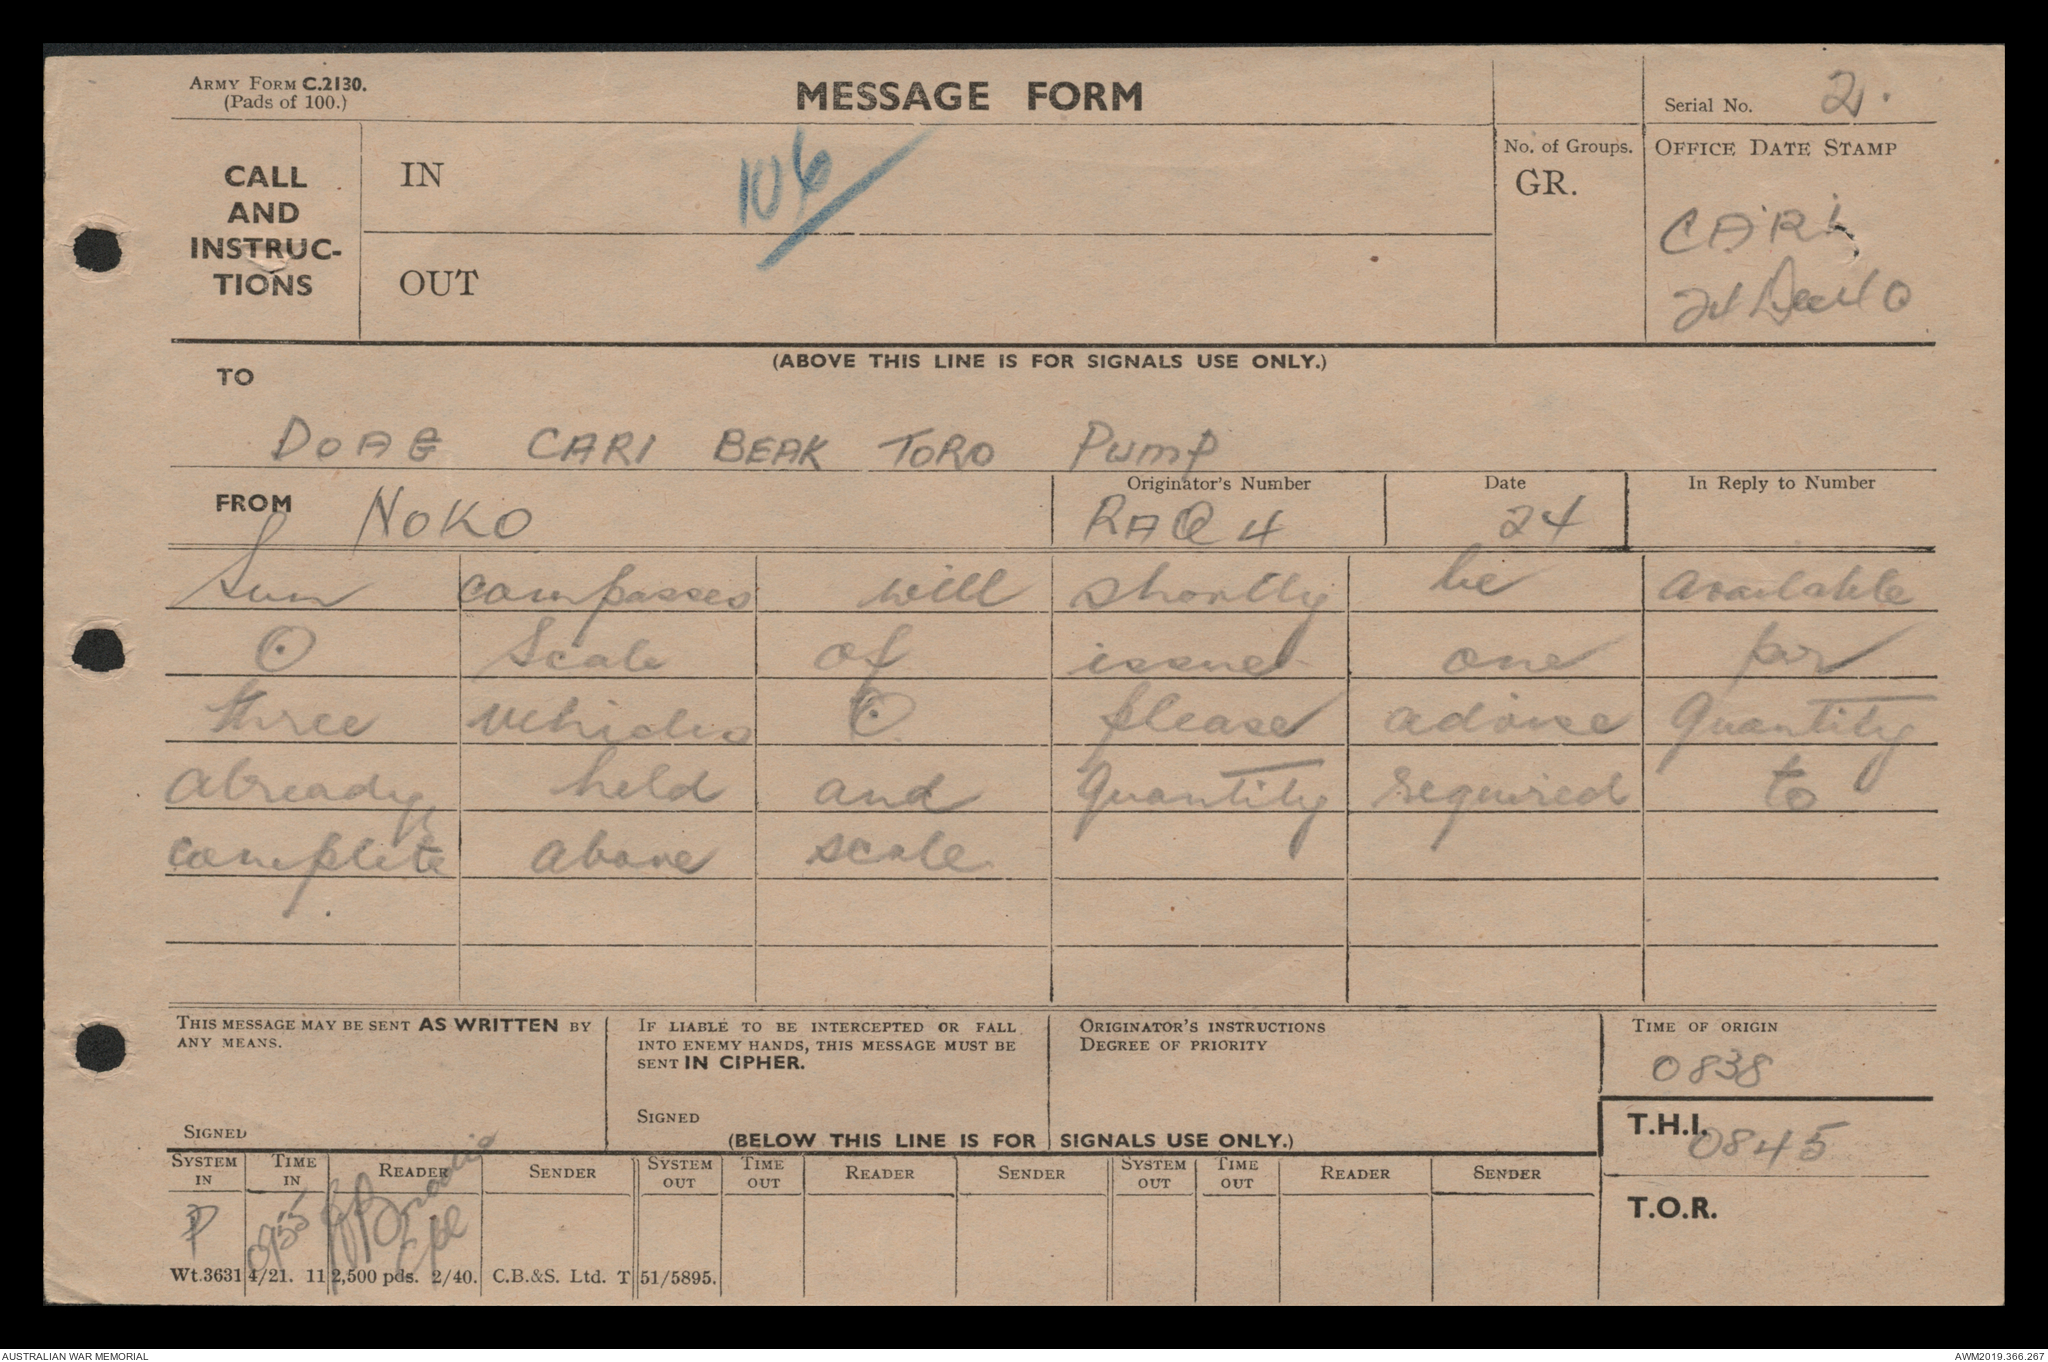 ARMY FORM C.2130.
(Pads of 100.)
MESSAGE FORM
Serial No. 2.
CALL AND INSTRUC-TIONS
IN
106
OUT
No. of Groups.
GR.
OFFICE DATE STAMP
CARI
24 Dec 40
(ABOVE THIS LINE IS FOR SIGNALS USE ONLY.)
TO
DOAE CARI BEAK TORO PUMP
FROM NOKO
Originator's Number
RAQ 4
Date
24
In Reply to Number
Sun compasses will shortly be available
⊙ Scale of issue one per
three vehicles ⊙ please advise quantity
already held and quantity required to
complete above scale
THIS MESSAGE MAY BE SENT AS WRITTEN BY
ANY MEANS.
SIGNED
IF LIABLE TO BE INTERCEPTED OR FALL
INTO ENEMY HANDS, THIS MESSAGE MUST BE
SENT IN CIPHER.
SIGNED
ORIGINATOR'S INSTRUCTIONS
DEGREE OF PRIORITY
TIME OF ORIGIN
0838
T.H.I.
0845
T.O.R.
(BELOW THIS LINE IS FOR SIGNALS USE ONLY.)
SYSTEM IN TIME IN READER SENDER SYSTEM OUT TIME OUT READER SENDER SYSTEM OUT TIME OUT READER SENDER
P 0955 Cpl
Wt.36314/21. 112,500 pds. 2/40. C.B.&S. Ltd. T51/5895.
AUSTRALIAN WAR MEMORIAL
AWM2019.366.267